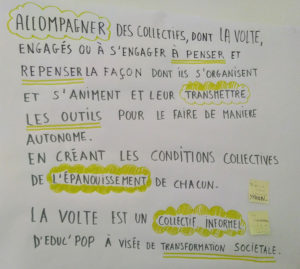 ACCOMPAGNER DES COLLECTIFS, DONT LA VOLTE,
ENGAGÉS OU À S'ENGAGER À PENSER ET
REPENSER LA FAÇON DONT ILS S'ORGANISENT
ET S'ANIMENT ET LEUR TRANSMETTRE
LES OUTILS POUR LE FAIRE DE MANIÈRE
AUTONOME.
EN CRÉANT LES CONDITIONS COLLECTIVES
DE L'ÉPANOUISSEMENT DE CHACUN.
LA VOLTE EST UN COLLECTIF INFORMEL
D'EDUC'POP À VISÉE DE TRANSFORMATION SOCIÉTALE.